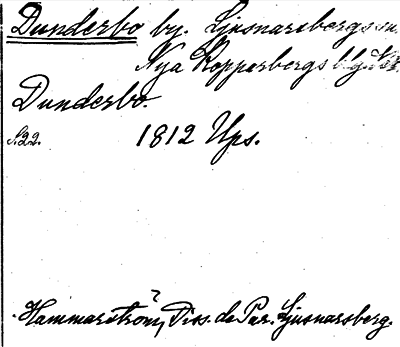 Dunderbo by. Ljusnarsbergs sn.
Nya Kopparbergs blg.
Dunderbo.
S.22. 1812 Ups.
Hammarström, Diss. de Par. Ljusnarsberg.